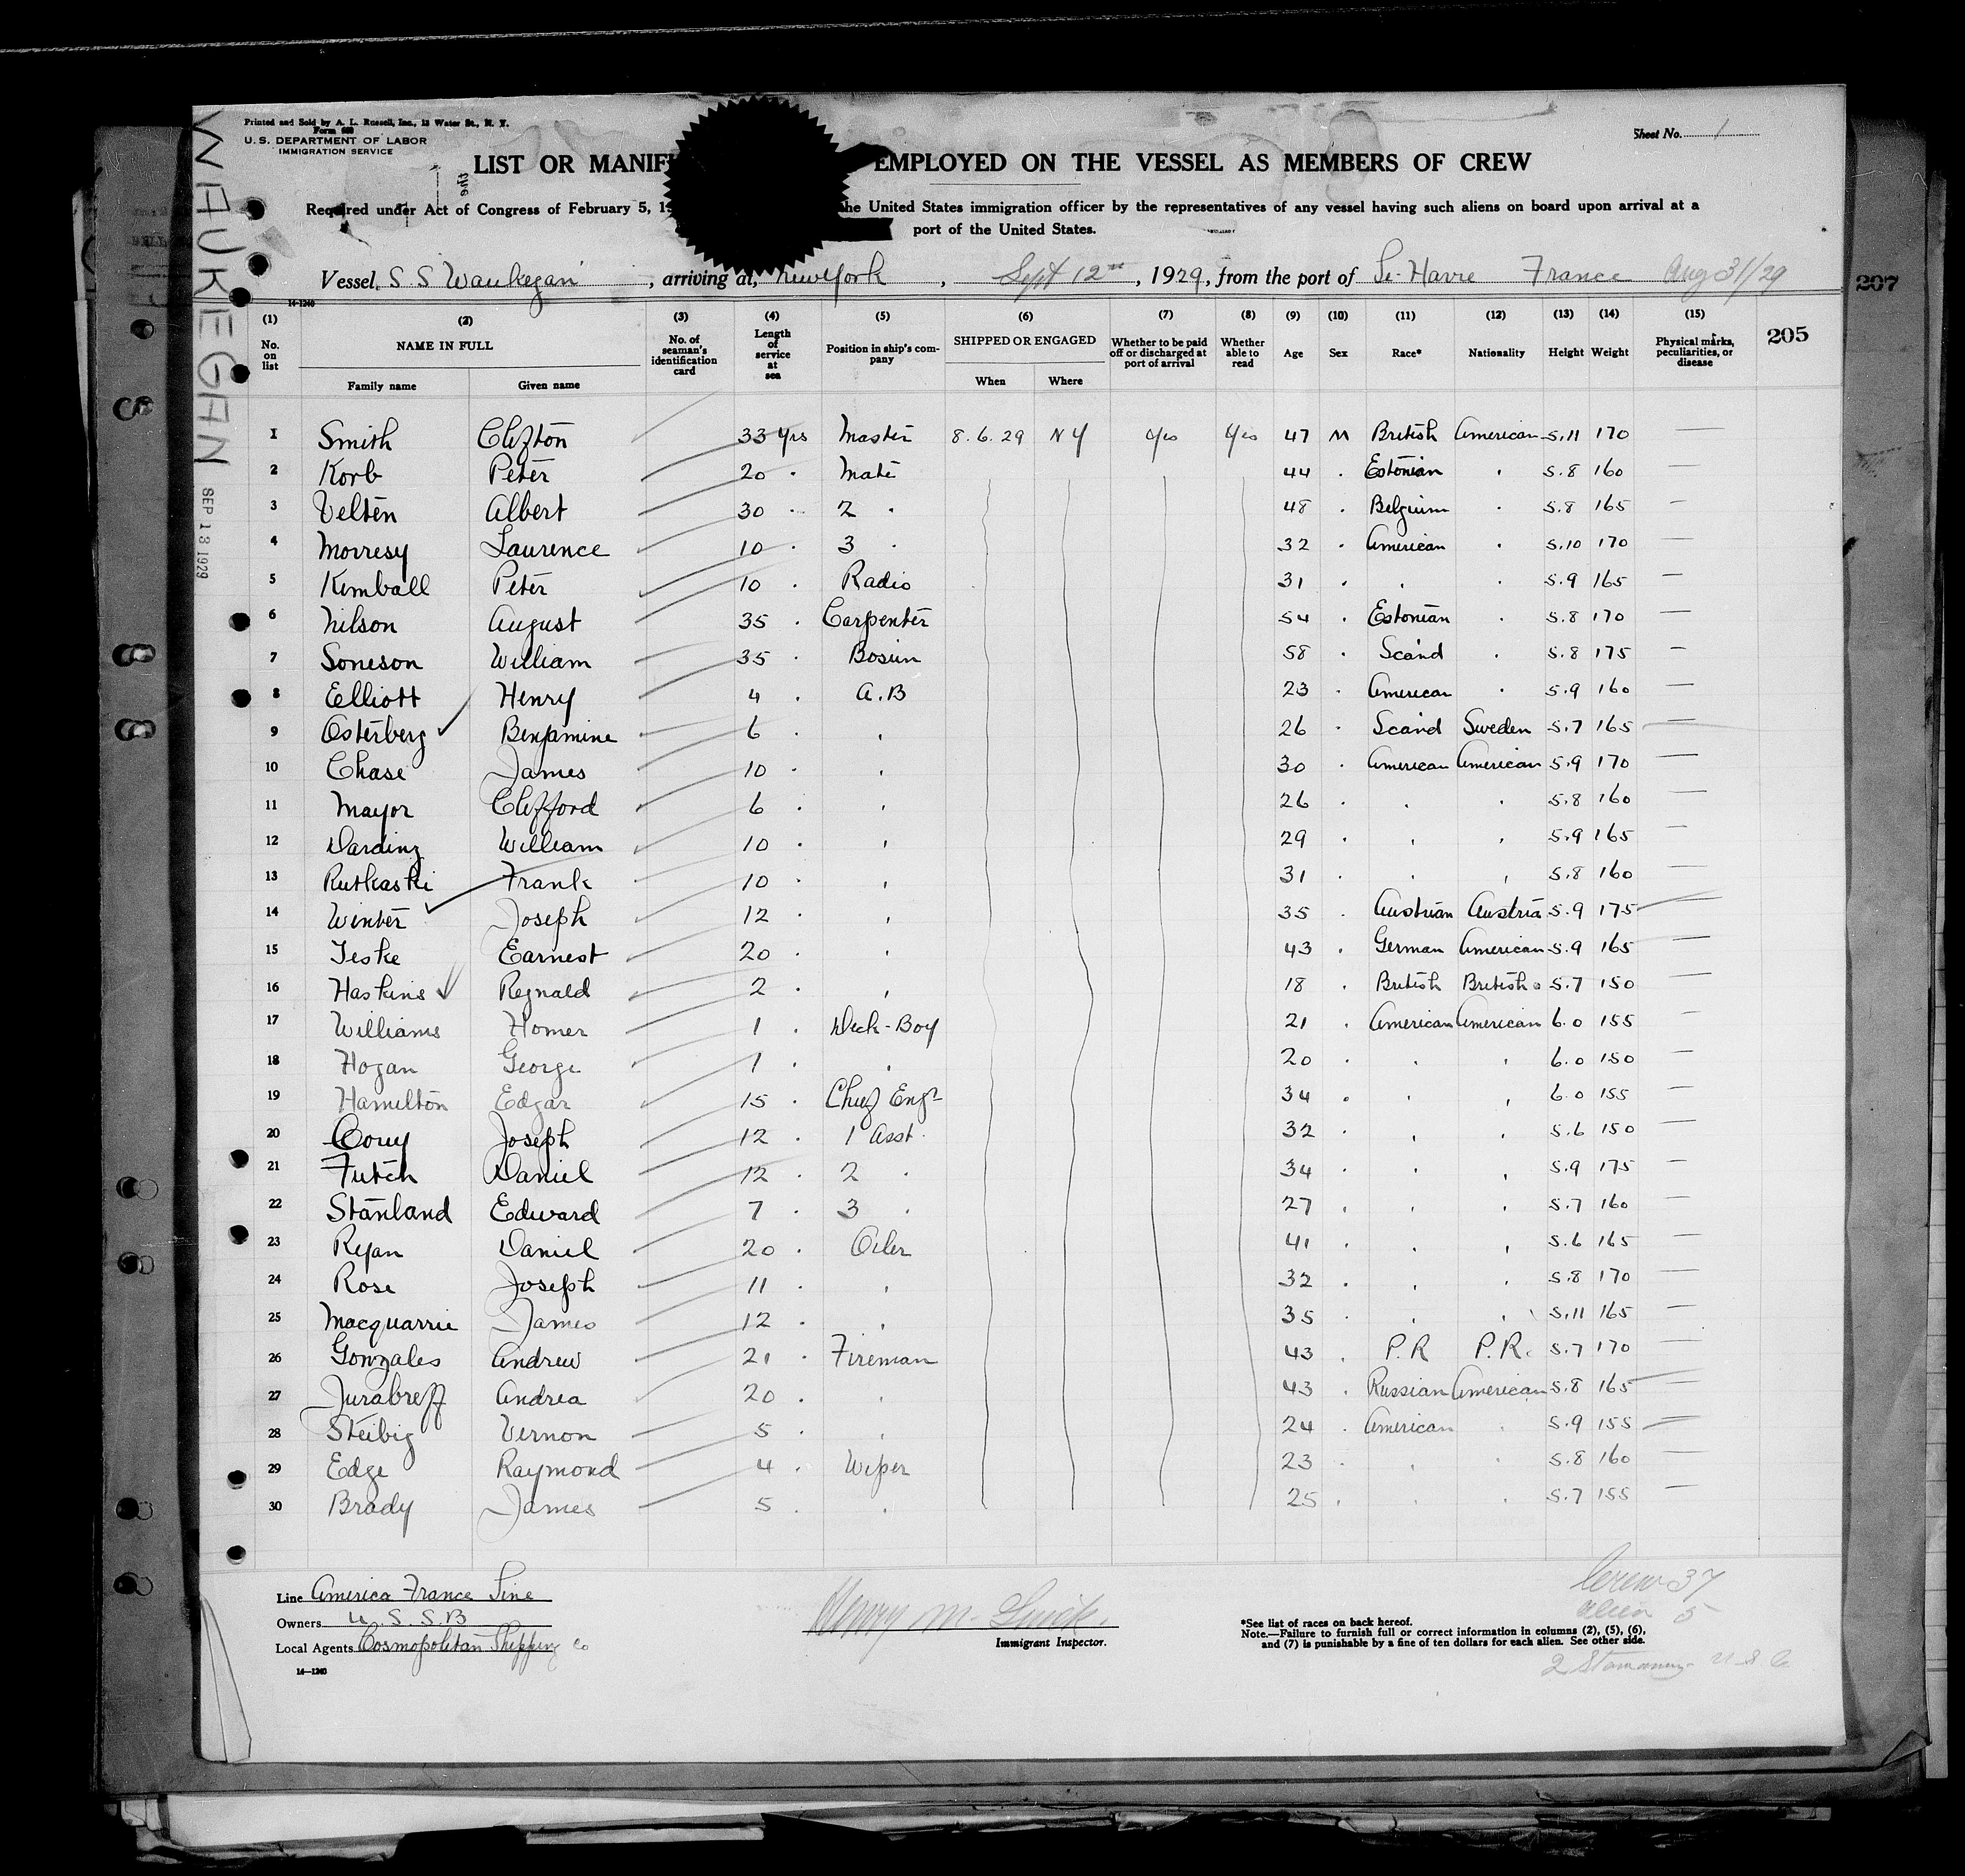 Printed and Sold by A. L. Russell, Inc., 13 Water St., N. Y.
Form 689
U. S. DEPARTMENT OF LABOR
IMMIGRATION SERVICE
Sheet No. 1
LIST OR MANIF EMPLOYED ON THE VESSEL AS MEMBERS OF CREW
the
Required under Act of Congress of February 5, 19 the United States immigration officer by the representatives of any vessel having such aliens on board upon arrival at a
port of the United States.
Vessel, S. S Waukegan, arriving at, New York, Sept 12th, 1929, from the port of Le-Havre France Aug 31/29
207
14-1240
WAUKEGAN SEP 13 1929
205
(1) (2) (3) (4) (5) (6) (7) (8) (9) (10) (11) (12) (13) (14) (15)
No. on list NAME IN FULL No. of seaman's identification card Length of service at sea Position in ship's company SHIPPED OR ENGAGED Whether to be paid off or discharged at port of arrival Whether able to read Age Sex Race* Nationality Height Weight Physical marks, peculiarities, or disease
Family name Given name When Where
1 Smith Clifton 33 yrs Master 8.6.29 NY Yes Yes 47 M British American 5.11 170 —
2 Korb Peter 20 . Mate 44 . Estonian . 5.8 160 —
3 Velten Albert 30 . 2 . 48 . Belgium . 5.8 165 —
4 Morresy Laurence 10 . 3 . 32 . American . 5.10 170 —
5 Kimball Peter 10 . Radio 31 . . . 5.9 165 —
6 Nilson August 35 . Carpenter 54 . Estonian . 5.8 170 —
7 Soneson William 35 . Bosun 58 . Scand . 5.8 175 —
8 Elliott Henry 4 . A.B 23 . American . 5.9 160 —
9 Osterberg Benjamine 6 . . 26 . Scand Sweden 5.7 165 —
10 Chase James 10 . . 30 . American American 5.9 170 —
11 Mayor Clifford 6 . . 26 . . . 5.8 160 —
12 Darding William 10 . . 29 . . . 5.9 165 —
13 Rutkaski Frank 10 . . 31 . . . 5.8 160 —
14 Winter Joseph 12 . . 35 . Austrian Austria 5.9 175 —
15 Teske Earnest 20 . . 43 . German American 5.9 165 —
16 Haskins Regnald 2 . . 18 . British British 5.7 150 —
17 Williams Homer 1 . Deck-Boy 21 . American American 6.0 155 —
18 Hogan George 1 . . 20 . . . 6.0 150 —
19 Hamilton Edgar 15 . Chief Engr 34 . . . 6.0 155 —
20 Cory Joseph 12 . 1 Asst. 32 . . . 5.6 150 —
21 Futch Daniel 12 . 2 . 34 . . . 5.9 175 —
22 Stanland Edward 7 . 3 . 27 . . . 5.7 160 —
23 Ryan Daniel 20 . Oiler 41 . . . 5.6 165 —
24 Rose Joseph 11 . . 32 . . . 5.8 170 —
25 Macquarrie James 12 . . 35 . . . 5.11 165 —
26 Gonzales Andrew 21 . Fireman 43 . P.R P.R. 5.7 170 —
27 Jurabreff Andrea 20 . . 43 . Russian American 5.8 165 —
28 Steibig Vernon 5 . . 24 . American . 5.9 155 —
29 Edge Raymond 4 . Wiper 23 . . . 5.8 160 —
30 Brady James 5 . . 25 . . . 5.7 155 —
Line America France Line
Owners U. S. S. B
Local Agents Cosmopolitan Shipping Co
14—1240
Henry M.
Immigrant Inspector.
Crew 37
alien 5
*See list of races on back hereof.
Note.—Failure to furnish full or correct information in columns (2), (5), (6),
and (7) is punishable by a fine of ten dollars for each alien. See other side.
2 U.S.C.